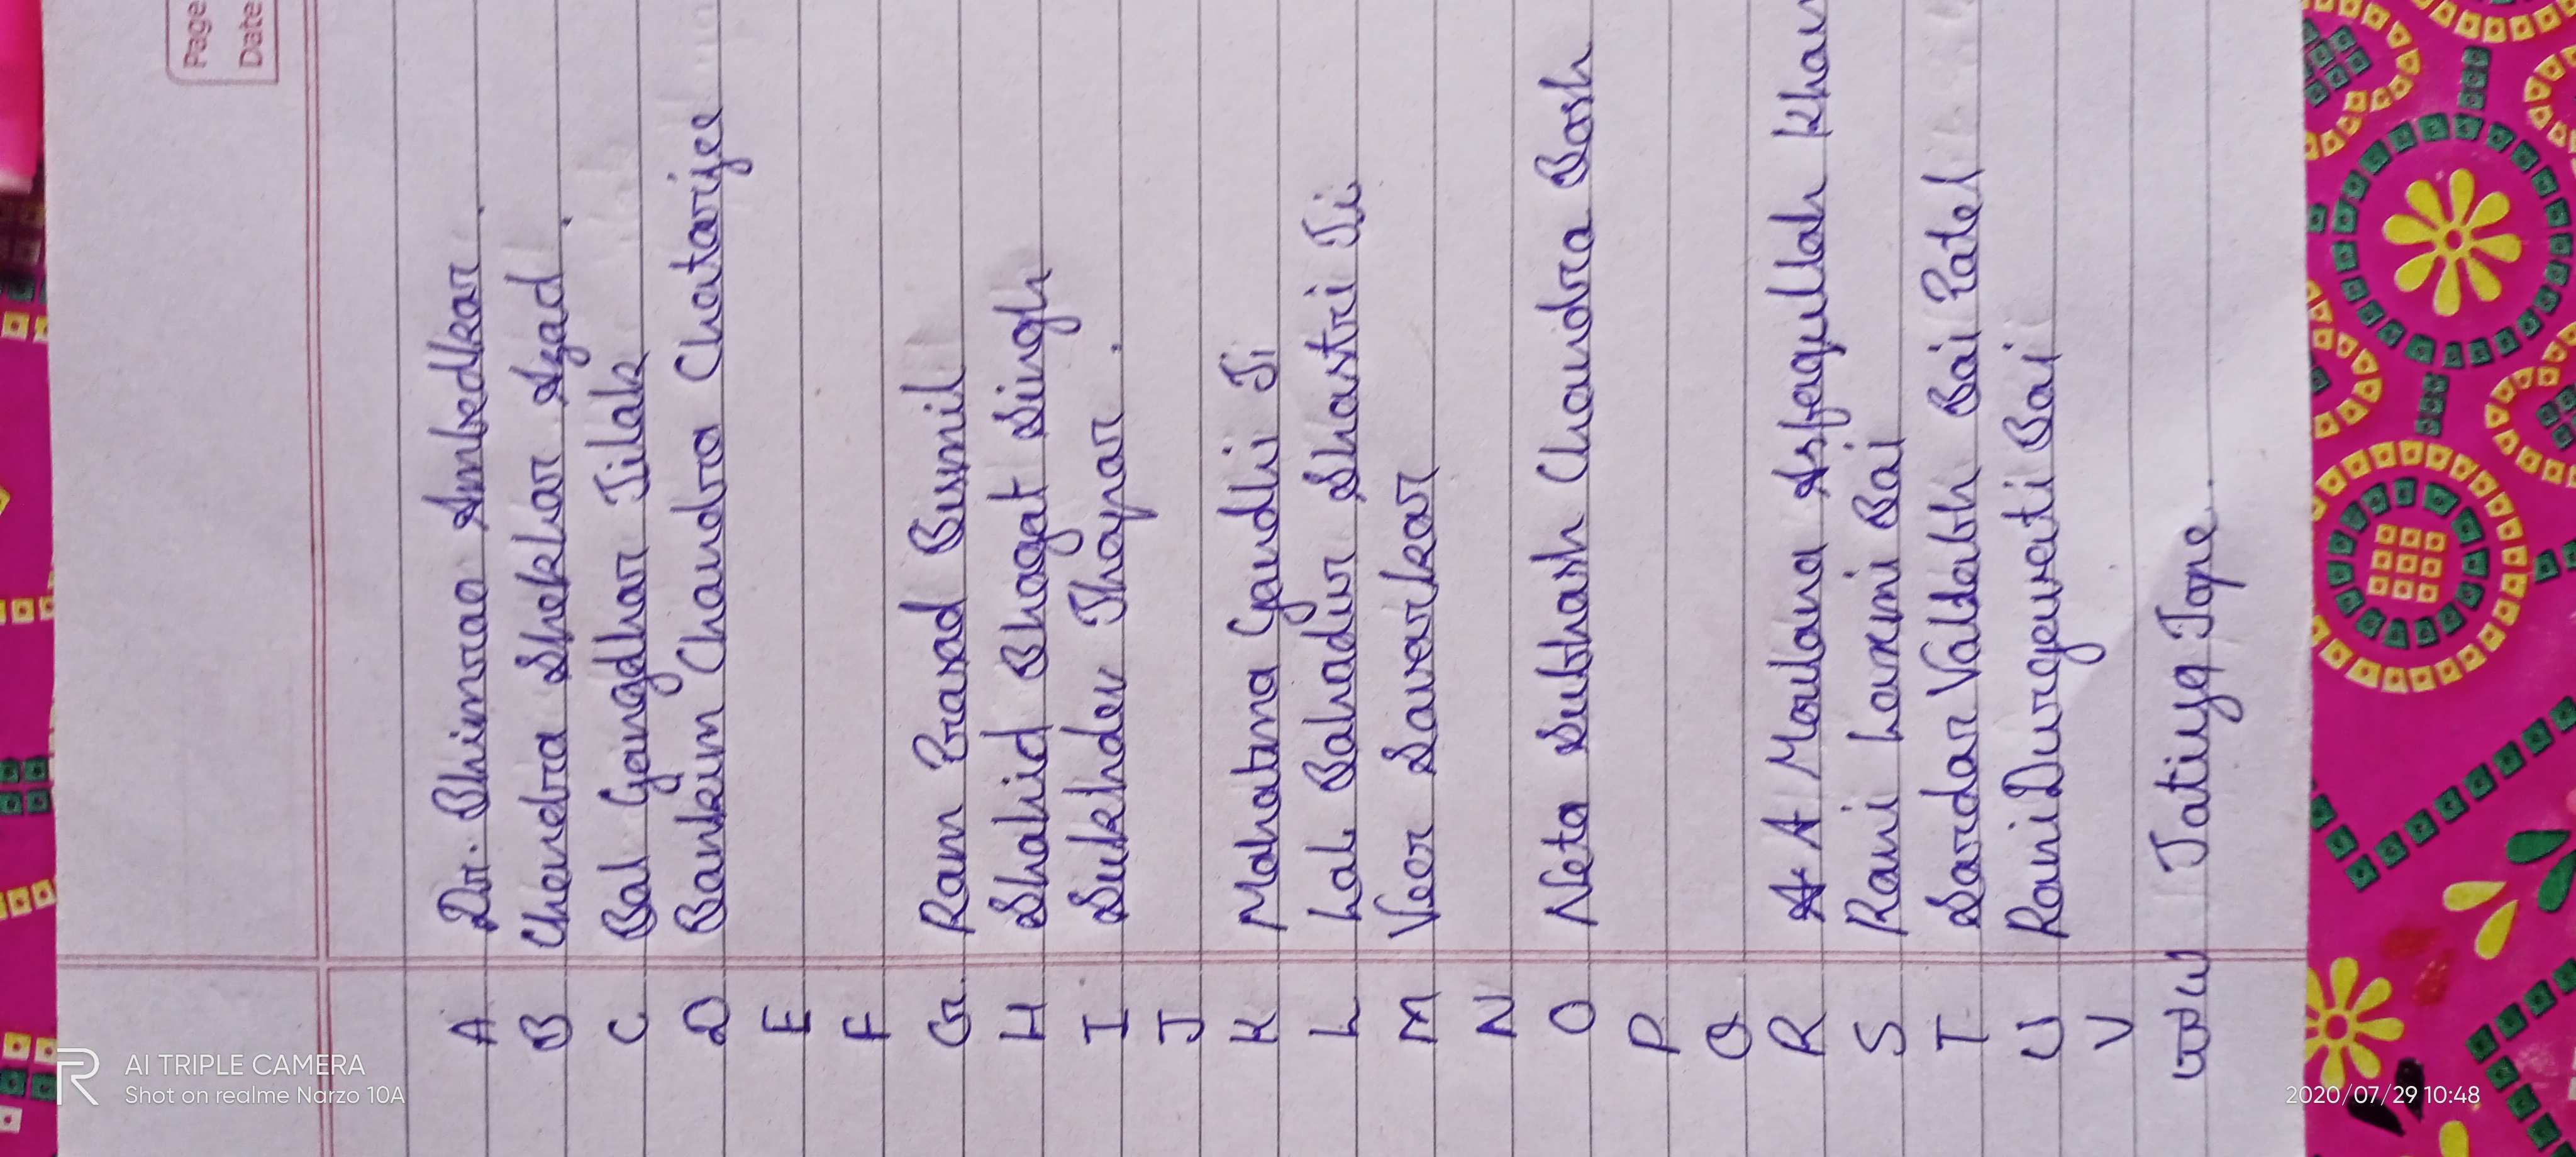 Page
Date
A Dr. Bhimrao Ambedkar.
B Chandra Shekhar Azad.
C Bal Gangdhar Tilak
D Bankim Chandra Chatarijee
E
F
G Ram Prasad Bismil
H Shahid Bhagat Singh
I Sukhdev Thapar.
J
K Mahatma Gandhi Ji
L Lal Bahadur Shastri Ji
M Veer Savarkar
N
O Neta Subhash Chandra Bosh
P
Q
R A Maulana Asfaqullah Khan
S Rani Laxmi Bai
T Sardar Valdabh Bai Patel
U Rani Durgavati Bai
V
W Tatiya Tope.
AI TRIPLE CAMERA
Shot on realme Narzo 10A
2020/07/29 10:48